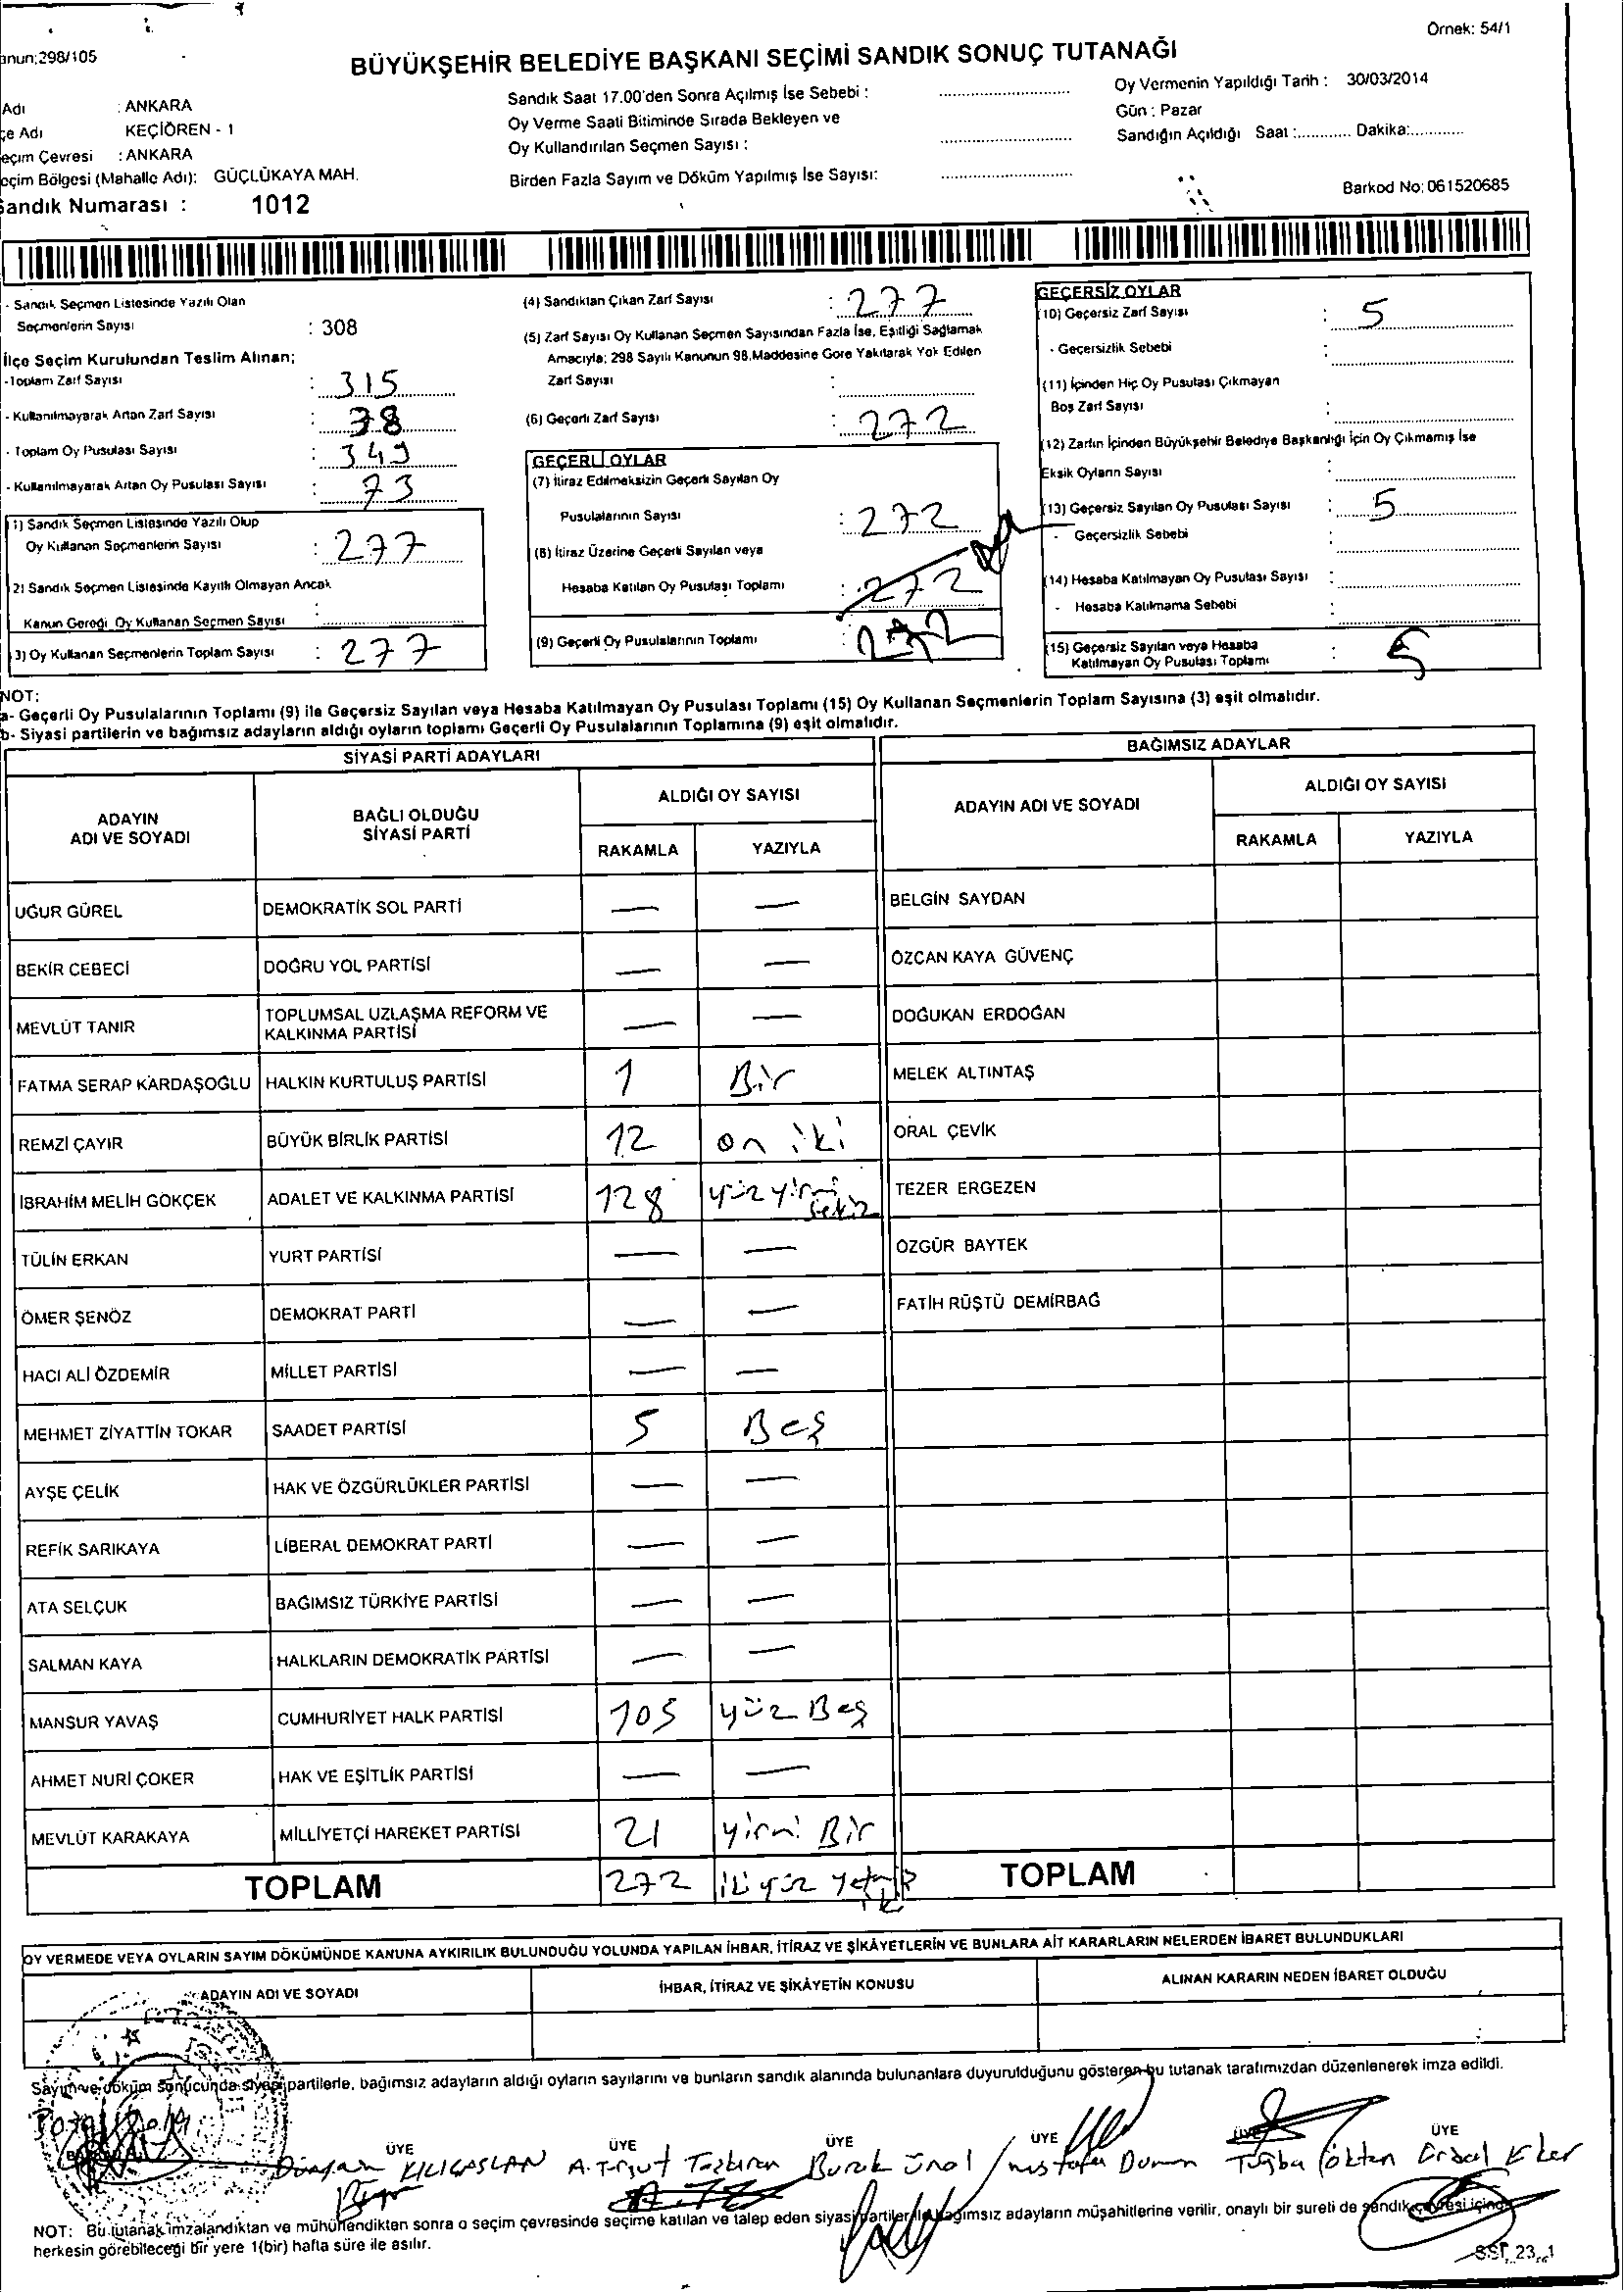 Örnek: 54/1
anun;298/105
BÜYÜKŞEHİR BELEDİYE BAŞKANI SEÇİMİ SANDIK SONUÇ TUTANAĞI
Adı : ANKARA
çe Adı KEÇİÖREN - 1
eçim Çevresi : ANKARA
eçim Bölgesi (Mahalle Adı): GÜÇLÜKAYA MAH.
Sandık Numarası : 1012
Sandık Saat 17.00'den Sonra Açılmış İse Sebebi :
Oy Verme Saati Bitiminde Sırada Bekleyen ve
Oy Kullandırılan Seçmen Sayısı :
Birden Fazla Sayım ve Döküm Yapılmış İse Sayısı:
Oy Vermenin Yapıldığı Tarih : 30/03/2014
Gün : Pazar
Sandığın Açıldığı Saat :............ Dakika:............
Barkod No: 061520685
- Sandık Seçmen Listesinde Yazılı Olan
Seçmenlerin Sayısı : 308
İlçe Seçim Kurulundan Teslim Alınan;
-Toplam Zarf Sayısı : 315
- Kullanılmayarak Artan Zarf Sayısı : 38
- Toplam Oy Pusulası Sayısı : 349
- Kullanılmayarak Artan Oy Pusulası Sayısı : 73
1) Sandık Seçmen Listesinde Yazılı Olup
Oy Kullanan Seçmenlerin Sayısı : 277
2) Sandık Seçmen Listesinde Kayıtlı Olmayan Ancak
Kanun Gereği Oy Kullanan Seçmen Sayısı :
3) Oy Kullanan Seçmenlerin Toplam Sayısı : 277
(4) Sandıktan Çıkan Zarf Sayısı : 277
(5) Zarf Sayısı Oy Kullanan Seçmen Sayısından Fazla İse, Eşitliği Sağlamak
Amacıyla; 298 Sayılı Kanunun 98.Maddesine Göre Yakılarak Yok Edilen
Zarf Sayısı :
(6) Geçerli Zarf Sayısı : 272
GEÇERLİ OYLAR
(7) İtiraz Edilmeksizin Geçerli Sayılan Oy
Pusulalarının Sayısı : 272
(8) İtiraz Üzerine Geçerli Sayılan veya
Hesaba Katılan Oy Pusulası Toplamı : 272
(9) Geçerli Oy Pusulalarının Toplamı : 272
GEÇERSİZ OYLAR
(10) Geçersiz Zarf Sayısı : 5
- Geçersizlik Sebebi :
(11) İçinden Hiç Oy Pusulası Çıkmayan
Boş Zarf Sayısı :
(12) Zarfın İçinden Büyükşehir Belediye Başkanlığı İçin Oy Çıkmamış İse
Eksik Oyların Sayısı :
(13) Geçersiz Sayılan Oy Pusulası Sayısı : 5
- Geçersizlik Sebebi :
(14) Hesaba Katılmayan Oy Pusulası Sayısı :
- Hesaba Katılmama Sebebi :
(15) Geçersiz Sayılan veya Hesaba
Katılmayan Oy Pusulası Toplamı : 5
NOT:
a- Geçerli Oy Pusulalarının Toplamı (9) ile Geçersiz Sayılan veya Hesaba Katılmayan Oy Pusulası Toplamı (15) Oy Kullanan Seçmenlerin Toplam Sayısına (3) eşit olmalıdır.
b- Siyasi partilerin ve bağımsız adayların aldığı oyların toplamı Geçerli Oy Pusulalarının Toplamına (9) eşit olmalıdır.
SİYASİ PARTİ ADAYLARI
ADAYIN
ADI VE SOYADI
BAĞLI OLDUĞU
SİYASİ PARTİ
ALDIĞI OY SAYISI
RAKAMLA YAZIYLA
UĞUR GÜREL DEMOKRATİK SOL PARTİ — —
BEKİR CEBECİ DOĞRU YOL PARTİSİ — —
MEVLÜT TANIR TOPLUMSAL UZLAŞMA REFORM VE
KALKINMA PARTİSİ — —
FATMA SERAP KARDAŞOĞLU HALKIN KURTULUŞ PARTİSİ 1 Bir
REMZİ ÇAYIR BÜYÜK BİRLİK PARTİSİ 12 on iki
İBRAHİM MELİH GÖKÇEK ADALET VE KALKINMA PARTİSİ 128 yüz yirmi
sekiz
TÜLİN ERKAN YURT PARTİSİ — —
ÖMER ŞENÖZ DEMOKRAT PARTİ — —
HACI ALİ ÖZDEMİR MİLLET PARTİSİ — —
MEHMET ZİYATTİN TOKAR SAADET PARTİSİ 5 Beş
AYŞE ÇELİK HAK VE ÖZGÜRLÜKLER PARTİSİ — —
REFİK SARIKAYA LİBERAL DEMOKRAT PARTİ — —
ATA SELÇUK BAĞIMSIZ TÜRKİYE PARTİSİ — —
SALMAN KAYA HALKLARIN DEMOKRATİK PARTİSİ — —
MANSUR YAVAŞ CUMHURİYET HALK PARTİSİ 105 yüz Beş
AHMET NURİ ÇOKER HAK VE EŞİTLİK PARTİSİ — —
MEVLÜT KARAKAYA MİLLİYETÇİ HAREKET PARTİSİ 21 yirmi Bir
TOPLAM 272 iki yüz yetmiş
iki
BAĞIMSIZ ADAYLAR
ADAYIN ADI VE SOYADI
ALDIĞI OY SAYISI
RAKAMLA YAZIYLA
BELGİN SAYDAN
ÖZCAN KAYA GÜVENÇ
DOĞUKAN ERDOĞAN
MELEK ALTINTAŞ
ORAL ÇEVİK
TEZER ERGEZEN
ÖZGÜR BAYTEK
FATİH RÜŞTÜ DEMİRBAĞ
TOPLAM
OY VERMEDE VEYA OYLARIN SAYIM DÖKÜMÜNDE KANUNA AYKIRILIK BULUNDUĞU YOLUNDA YAPILAN İHBAR, İTİRAZ VE ŞİKÂYETLERİN VE BUNLARA AİT KARARLARIN NELERDEN İBARET BULUNDUKLARI
ADAYIN ADI VE SOYADI İHBAR, İTİRAZ VE ŞİKÂYETİN KONUSU ALINAN KARARIN NEDEN İBARET OLDUĞU
Sayım ve döküm sonucunda siyasi partilerle, bağımsız adayların aldığı oyların sayılarını ve bunların sandık alanında bulunanlara duyurulduğunu gösteren bu tutanak tarafımızdan düzenlenerek imza edildi.
ÜYE ÜYE ÜYE ÜYE ÜYE ÜYE
KILIÇASLAN A. Turgut Burak Ünal Mustafa Duman Tuğba Gökten Erdal Eker
NOT: Bu tutanak imzalandıktan ve mühürlendikten sonra o seçim çevresinde seçime katılan ve talep eden siyasi partiler ile bağımsız adayların müşahitlerine verilir, onaylı bir sureti de sandık çevresi içinde
herkesin görebileceği bir yere 1(bir) hafta süre ile asılır.